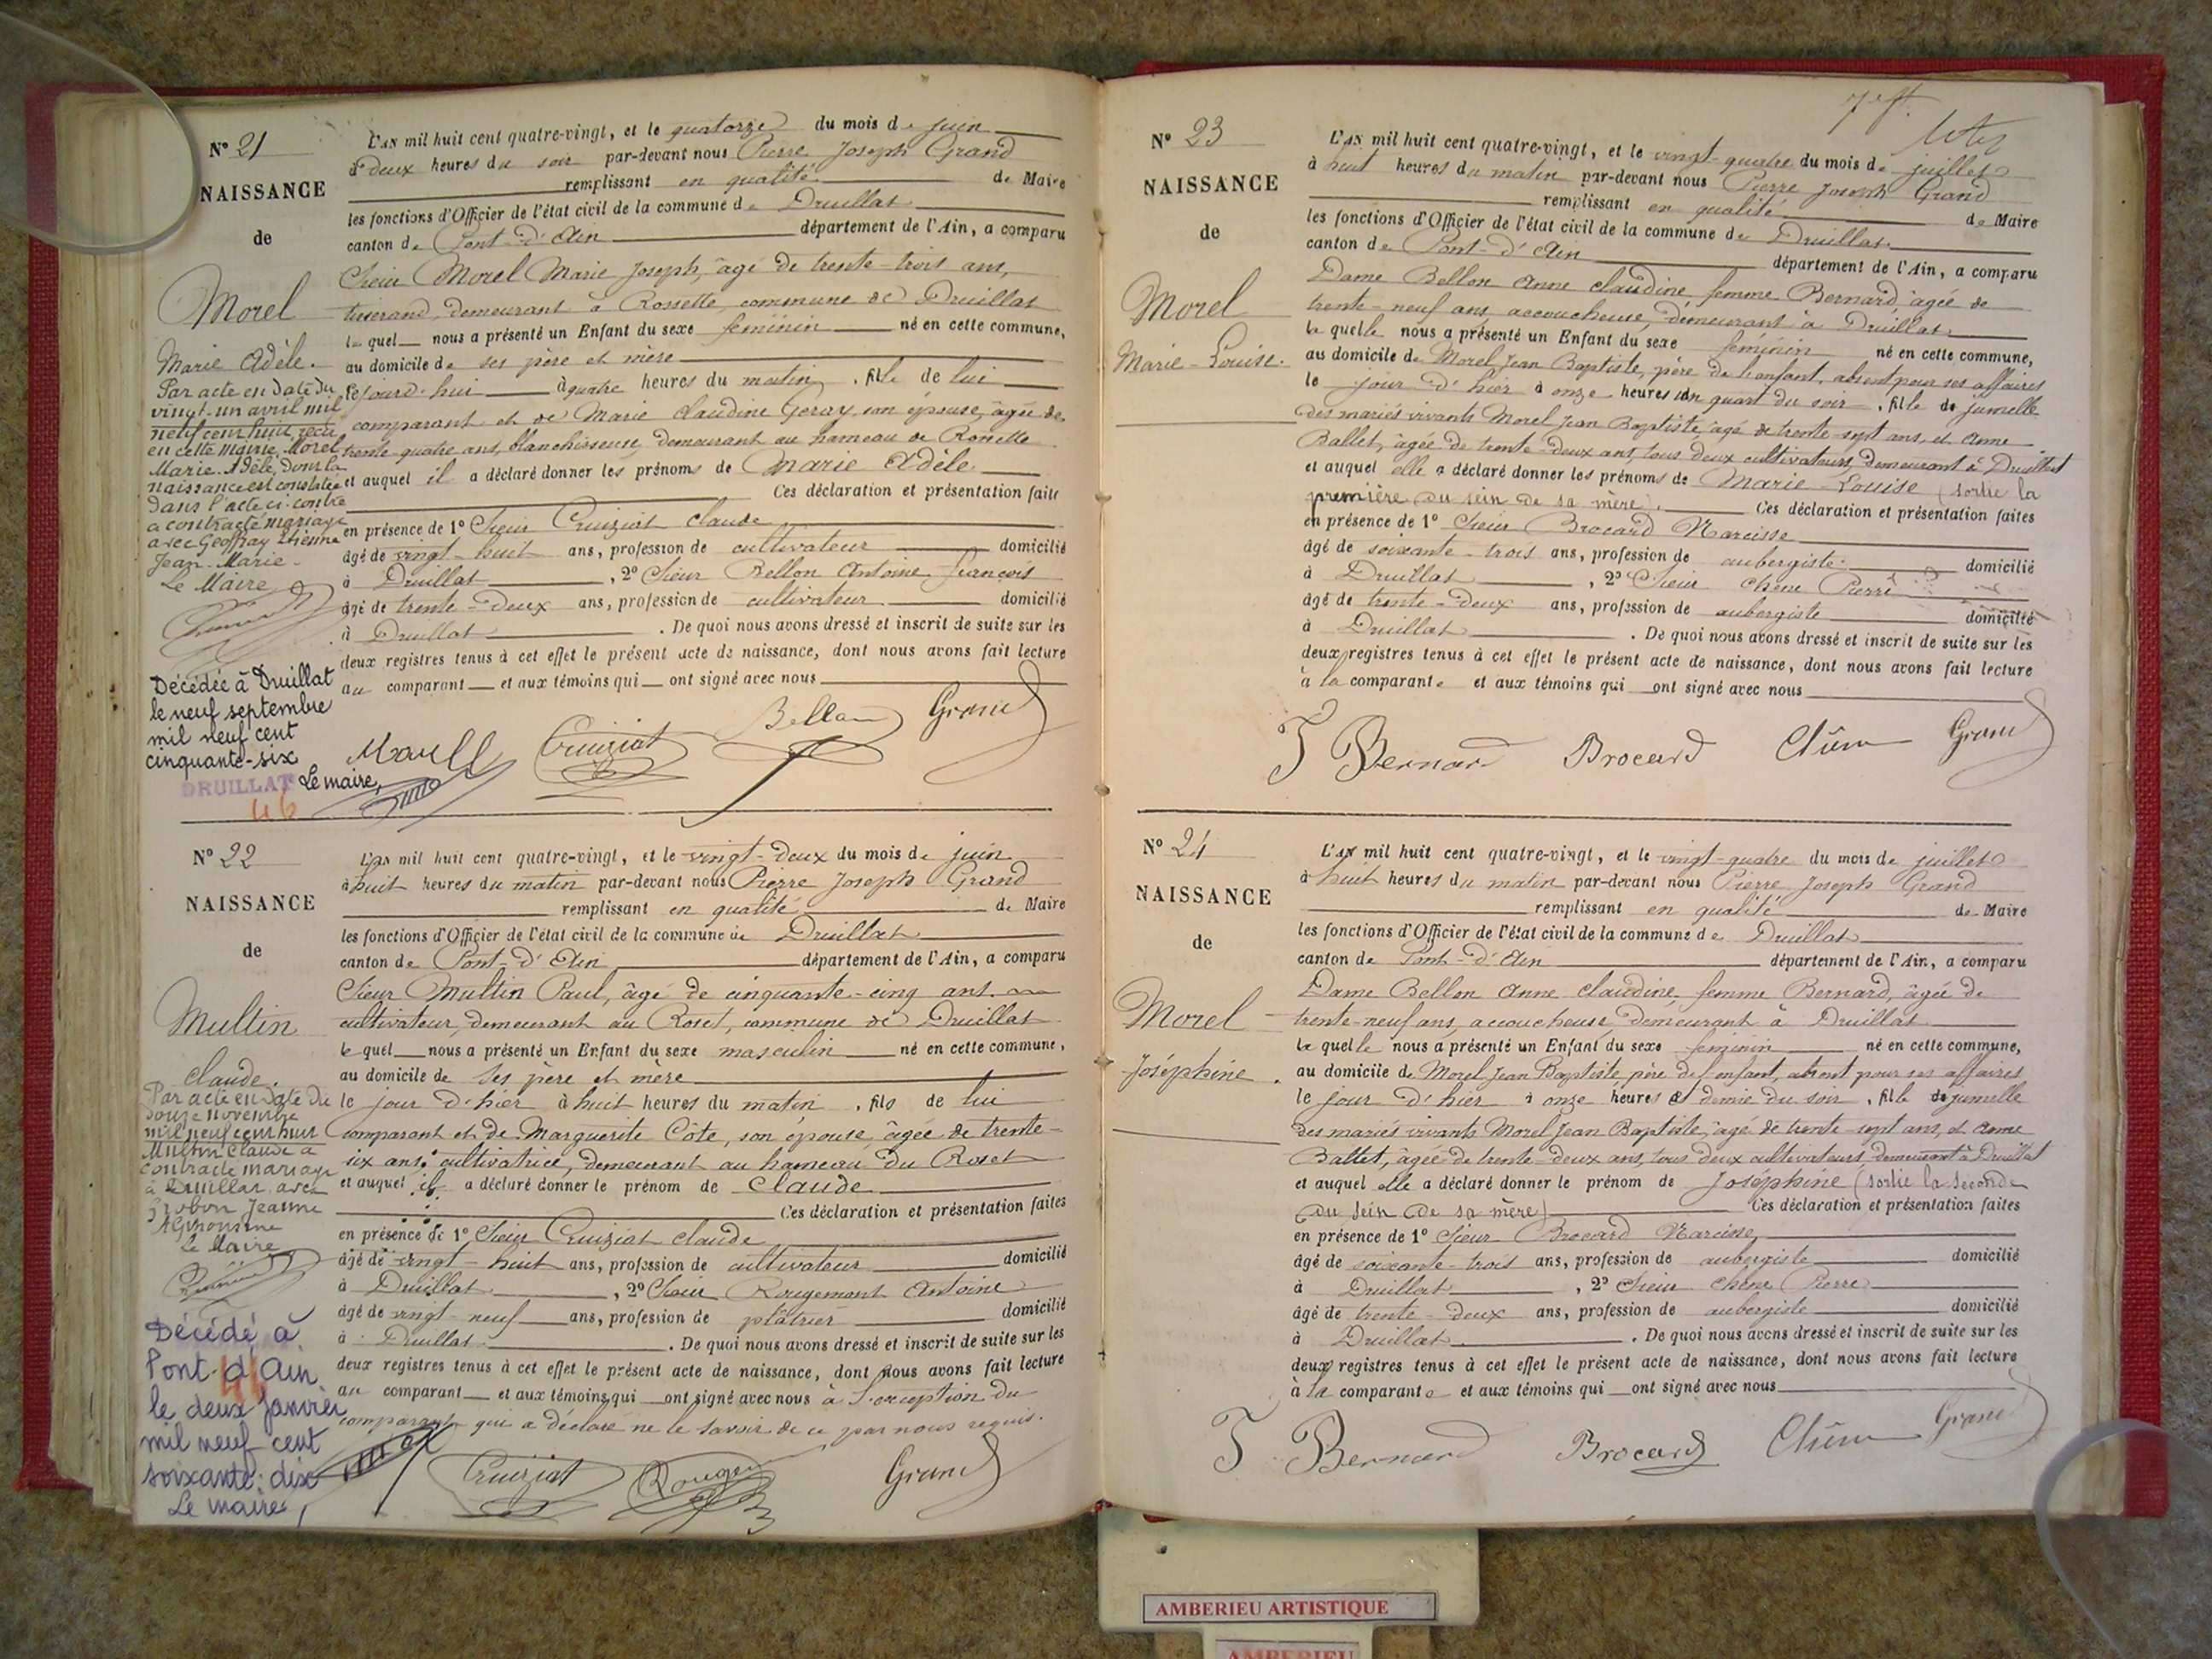 N° 21
NAISSANCE
de
Morel
Marie Adèle.
Par acte en date du
vingt-un avril mil
neuf cent huit, reçu
en cette mairie, Morel
Marie-Adèle, dont la
naissance est constatée
dans l'acte ci-contre
a contracté mariage
avec Geoffray Etienne
Jean-Marie
Le Maire
Décédée à Druillat
le neuf septembre
mil neuf cent
cinquante-six
DRUILLAT Le maire,
46
L'AN mil huit cent quatre-vingt, et le quatorze du mois de juin
à deux heures du soir par-devant nous Pierre Joseph Grand
remplissant en qualité de Maire
les fonctions d'Officier de l'état civil de la commune de Druillat
canton de Pont-d'Ain département de l'Ain, a comparu
Sieur Morel Marie Joseph, âgé de trente-trois ans,
tisserand, demeurant à Rossette, commune de Druillat
lequel nous a présenté un Enfant du sexe féminin né en cette commune,
au domicile de ses père et mère
cejourd'hui à quatre heures du matin, fille de lui
comparant et de Marie Claudine Geray, son épouse, âgée de
trente quatre ans, blanchisseuse, demeurant au hameau de Rossette
et auquel il a déclaré donner les prénoms de Marie Adèle
Ces déclaration et présentation faite
en présence de 1° Sieur Cruiziat Claude
âgé de vingt-huit ans, profession de cultivateur domicilié
à Druillat, 2° Sieur Bellon Antoine François
âgé de trente-deux ans, profession de cultivateur domicilié
à Druillat. De quoi nous avons dressé et inscrit de suite sur les
deux registres tenus à cet effet le présent acte de naissance, dont nous avons fait lecture
au comparant et aux témoins qui ont signé avec nous
Cruiziat Bellon Grand
N° 22
NAISSANCE
de
Multin
Claude.
Par acte en date du
douze novembre
mil neuf cent huit
Multin Claude a
contracté mariage
à Druillat avec
Jeanne
Le Maire
Décédé à
Pont-d'Ain
le deux janvier
mil neuf cent
soixante-dix
Le maire,
L'AN mil huit cent quatre-vingt, et le vingt-deux du mois de juin
à huit heures du matin par-devant nous Pierre Joseph Grand
remplissant en qualité de Maire
les fonctions d'Officier de l'état civil de la commune de Druillat
canton de Pont-d'Ain département de l'Ain, a comparu
Sieur Multin Paul, âgé de cinquante-cinq ans
cultivateur, demeurant au Roset, commune de Druillat
lequel nous a présenté un Enfant du sexe masculin né en cette commune,
au domicile de ses père et mère
le jour d'hier à huit heures du matin, fils de lui
comparant et de Marguerite Côte, son épouse, âgée de trente-
six ans, cultivatrice, demeurant au hameau du Roset
et auquel il a déclaré donner le prénom de Claude
Ces déclaration et présentation faites
en présence de 1° Sieur Cruiziat Claude
âgé de vingt-huit ans, profession de cultivateur domicilié
à Druillat, 2° Sieur Rougemont Antoine
âgé de vingt-neuf ans, profession de plâtrier domicilié
à Druillat. De quoi nous avons dressé et inscrit de suite sur les
deux registres tenus à cet effet le présent acte de naissance, dont nous avons fait lecture
au comparant et aux témoins qui ont signé avec nous à l'exception du
comparant qui a déclaré ne le savoir de ce par nous requis.
Cruiziat Grand
N° 23
NAISSANCE
de
Morel
Marie-Louise.
L'AN mil huit cent quatre-vingt, et le vingt-quatre du mois de juillet
à huit heures du matin par-devant nous Pierre Joseph Grand
remplissant en qualité de Maire
les fonctions d'Officier de l'état civil de la commune de Druillat
canton de Pont-d'Ain département de l'Ain, a comparu
Dame Bellon Anne Claudine, femme Bernard, âgée de
trente-neuf ans, accoucheuse, demeurant à Druillat
laquelle nous a présenté un Enfant du sexe féminin né en cette commune,
au domicile de Morel Jean Baptiste, père de l'enfant, absent pour ses affaires
le jour d'hier à onze heures un quart du soir, fille jumelle
des mariés vivants Morel Jean Baptiste, âgé de trente-sept ans, et Anne
Ballet, âgée de trente-deux ans, tous deux cultivateurs, demeurant à Druillat
et auquel elle a déclaré donner les prénoms de Marie-Louise (sortie la
première du sein de sa mère). Ces déclaration et présentation faites
en présence de 1° Sieur Brocard Narcisse
âgé de soixante-trois ans, profession de aubergiste domicilié
à Druillat, 2° Sieur Chêne Pierre
âgé de trente-deux ans, profession de aubergiste domicilié
à Druillat. De quoi nous avons dressé et inscrit de suite sur les
deux registres tenus à cet effet le présent acte de naissance, dont nous avons fait lecture
à la comparante et aux témoins qui ont signé avec nous
F Bernard Brocard Chêne Grand
N° 24
NAISSANCE
de
Morel
Joséphine.
L'AN mil huit cent quatre-vingt, et le vingt-quatre du mois de juillet
à huit heures du matin par-devant nous Pierre Joseph Grand
remplissant en qualité de Maire
les fonctions d'Officier de l'état civil de la commune de Druillat
canton de Pont-d'Ain département de l'Ain, a comparu
Dame Bellon Anne Claudine, femme Bernard, âgée de
trente-neuf ans, accoucheuse, demeurant à Druillat
laquelle nous a présenté un Enfant du sexe féminin né en cette commune,
au domicile de Morel Jean Baptiste, père de l'enfant, absent pour ses affaires
le jour d'hier à onze heures et demie du soir, fille jumelle
des mariés vivants Morel Jean Baptiste, âgé de trente-sept ans, et Anne
Ballet, âgée de trente-deux ans, tous deux cultivateurs, demeurant à Druillat
et auquel elle a déclaré donner le prénom de Joséphine (sortie la seconde
du sein de sa mère) Ces déclaration et présentation faites
en présence de 1° Sieur Brocard Narcisse
âgé de soixante-trois ans, profession de aubergiste domicilié
à Druillat, 2° Sieur Chêne Pierre
âgé de trente-deux ans, profession de aubergiste domicilié
à Druillat. De quoi nous avons dressé et inscrit de suite sur les
deux registres tenus à cet effet le présent acte de naissance, dont nous avons fait lecture
à la comparante et aux témoins qui ont signé avec nous
F Bernard Brocard Chêne Grand
AMBERIEU ARTISTIQUE
AMBERIEU